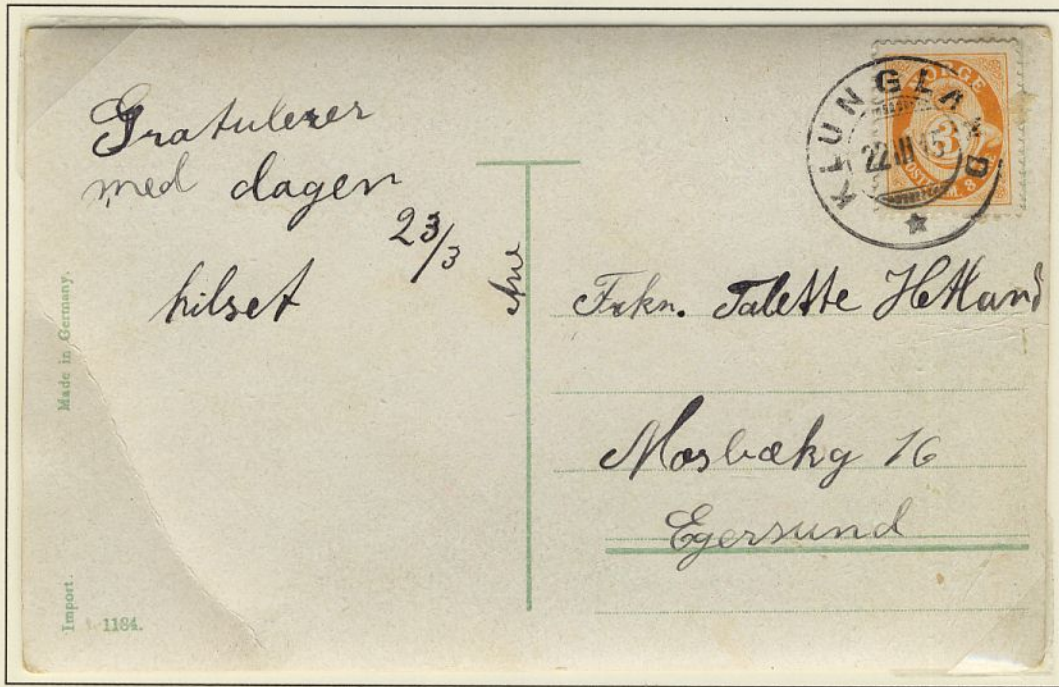 Gratulerer
med dagen
23/3
hilset
Ane
Made in Germany.
Import.
1184.
NORGE
3
KLUNGLAND
22 III 15
Frkn. Talette Hetland
Mosbækg 16
Egersund